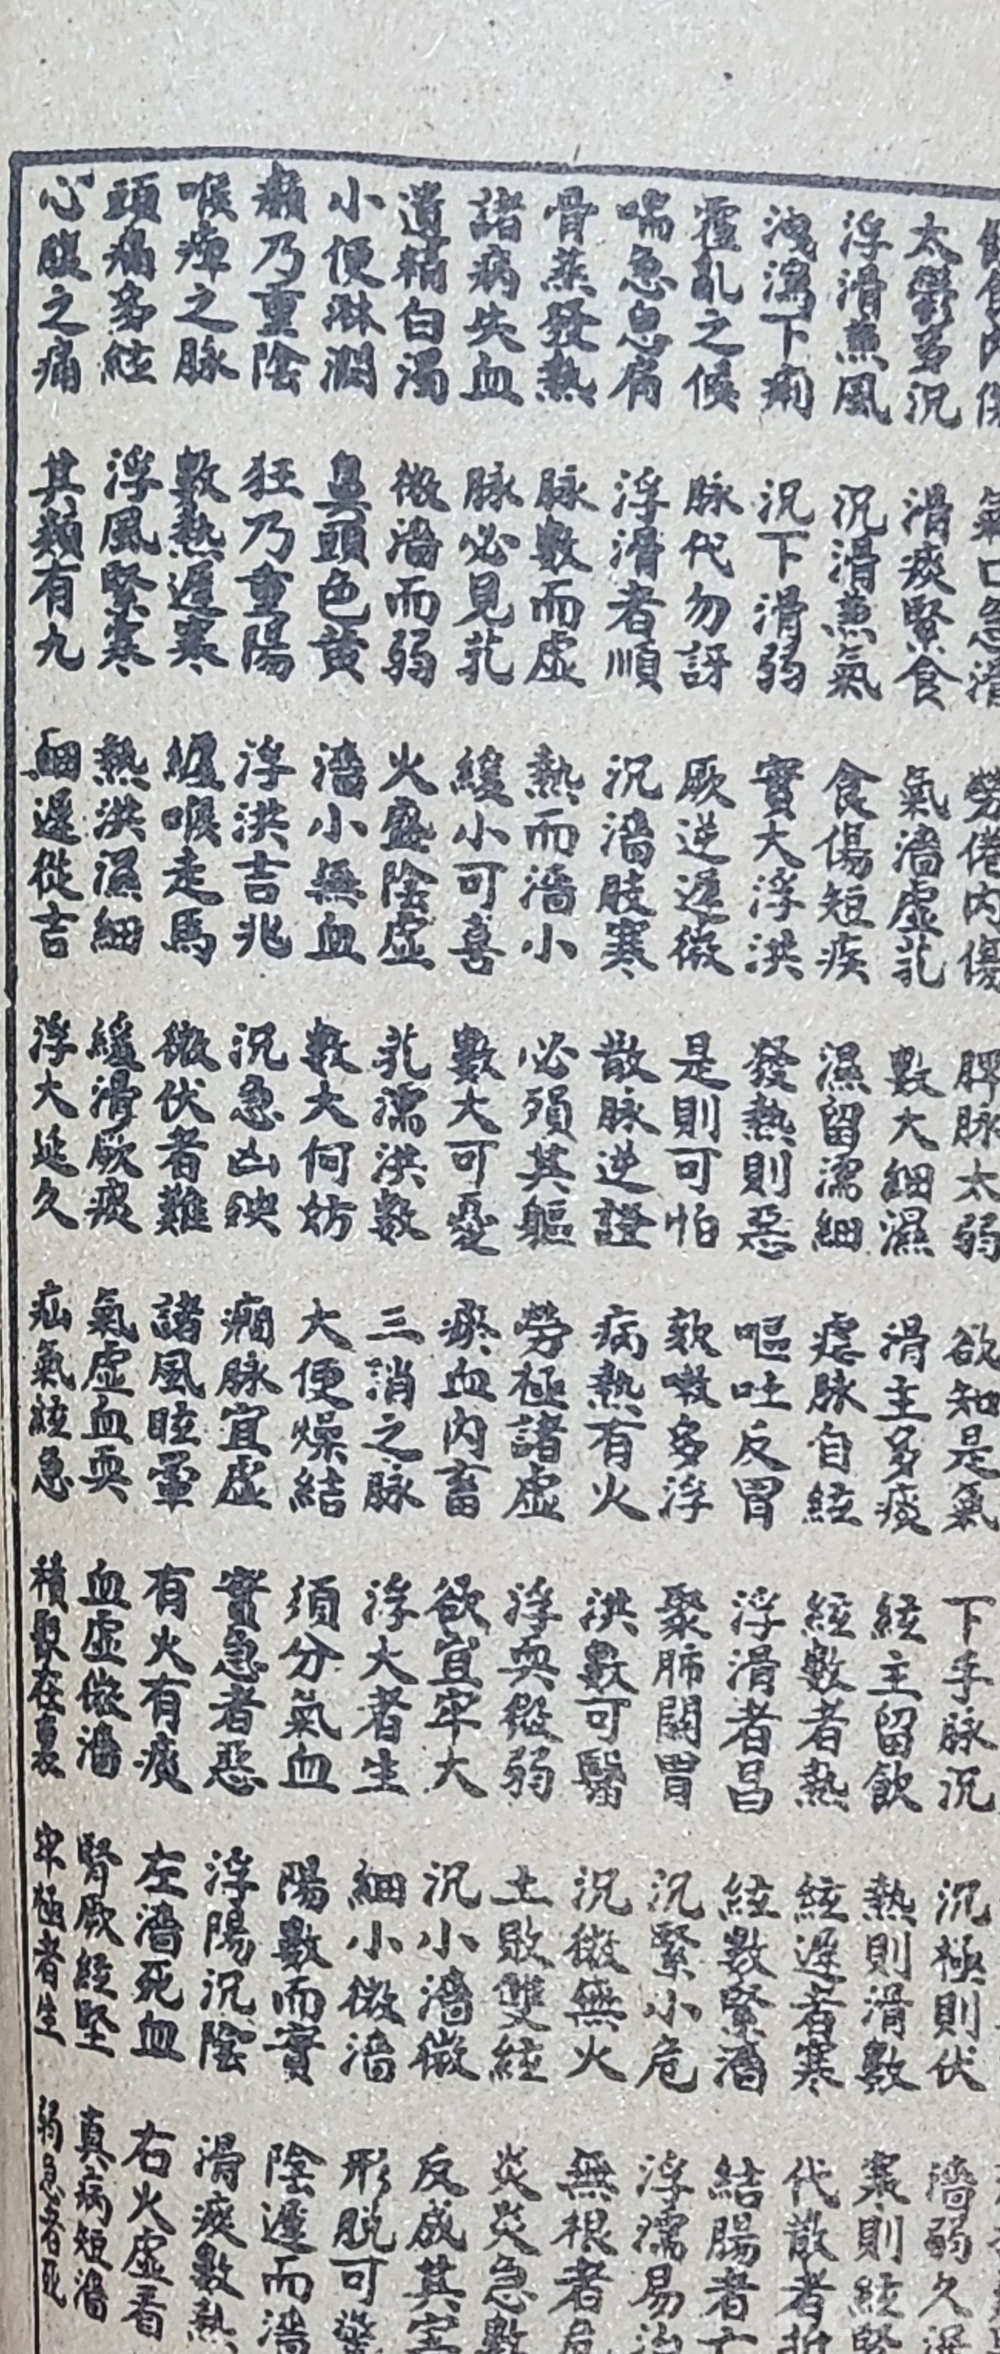 食內傷 氣口急滑 勞倦內傷 脾脉太弱 欲知是氣 下手脉沉 沉極則伏 濇弱久深
太鬱多沉 滑痰緊食 氣濇虛芤 數大細濕 滑主多痰 絃主留飲 熱則滑數 寒則絃緊
浮滑兼風 沉滑兼氣 食傷短疾 濕留濡細 瘧脉自絃 絃數者熱 絃遲者寒 代散者折
洩瀉下痢 沉下滑弱 實大浮洪 發熱則惡 嘔吐反胃 浮滑者昌 絃數緊濇 結腸者亡
霍亂之候 脉代勿訝 厥逆遲微 是則可怕 欬嗽多浮 聚肺關胃 沉緊小危 浮濡易治
喘急息肩 浮滑者順 沉濇肢寒 散脉逆證 病熱有火 洪數可醫 沉微無火 無根者危
骨蒸發熱 脉數而虛 熱而濇小 必殞其軀 勞極諸虛 浮耎微弱 土敗雙絃 炎炎急數
諸病失血 脉必見芤 緩小可喜 數大可憂 瘀血內畜 欲宜牢大 沉小濇微 反成其害
遺精白濁 微濇而弱 火盛陰虛 芤濡洪數 三消之脉 浮大者生 細小微濇 形脱可驚
小便淋澗 鼻頭色黃 濇小無血 數大何妨 大便燥結 須分氣血 陽數而實 陰遲而濇
癲乃重陰 狂乃重陽 浮洪吉兆 沉急凶殃 癇脉宜虛 實急者惡 浮陽沉陰 滑痰數熱
喉痺之脉 數熱遲寒 纏喉走馬 微伏者難 諸風眩暈 有火有痰 左濇死血 右火虛看
頭痛多絃 浮風緊寒 熱洪濕細 緩滑厥痰 氣虛血耎 血虛微濇 腎厥絃堅 真病短濇
心腹之痛 其類有九 細遲從吉 浮大延久 疝氣絃急 積聚在裏 牢極者生 弱急者死